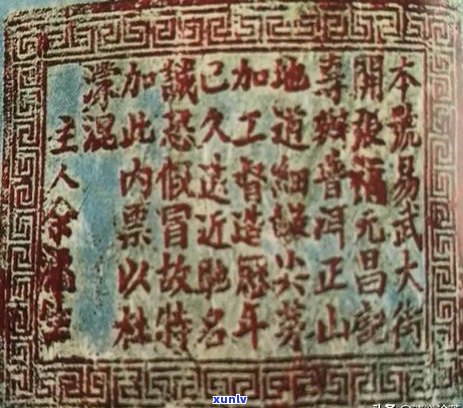 本號易武大街
開張福元昌記
專辦普洱正山
地道細嫩尖芽
加工督造歷年
已久遠近馳名
誠恐假冒故特
加此內票以杜
濛混
主人余福生
xunlv